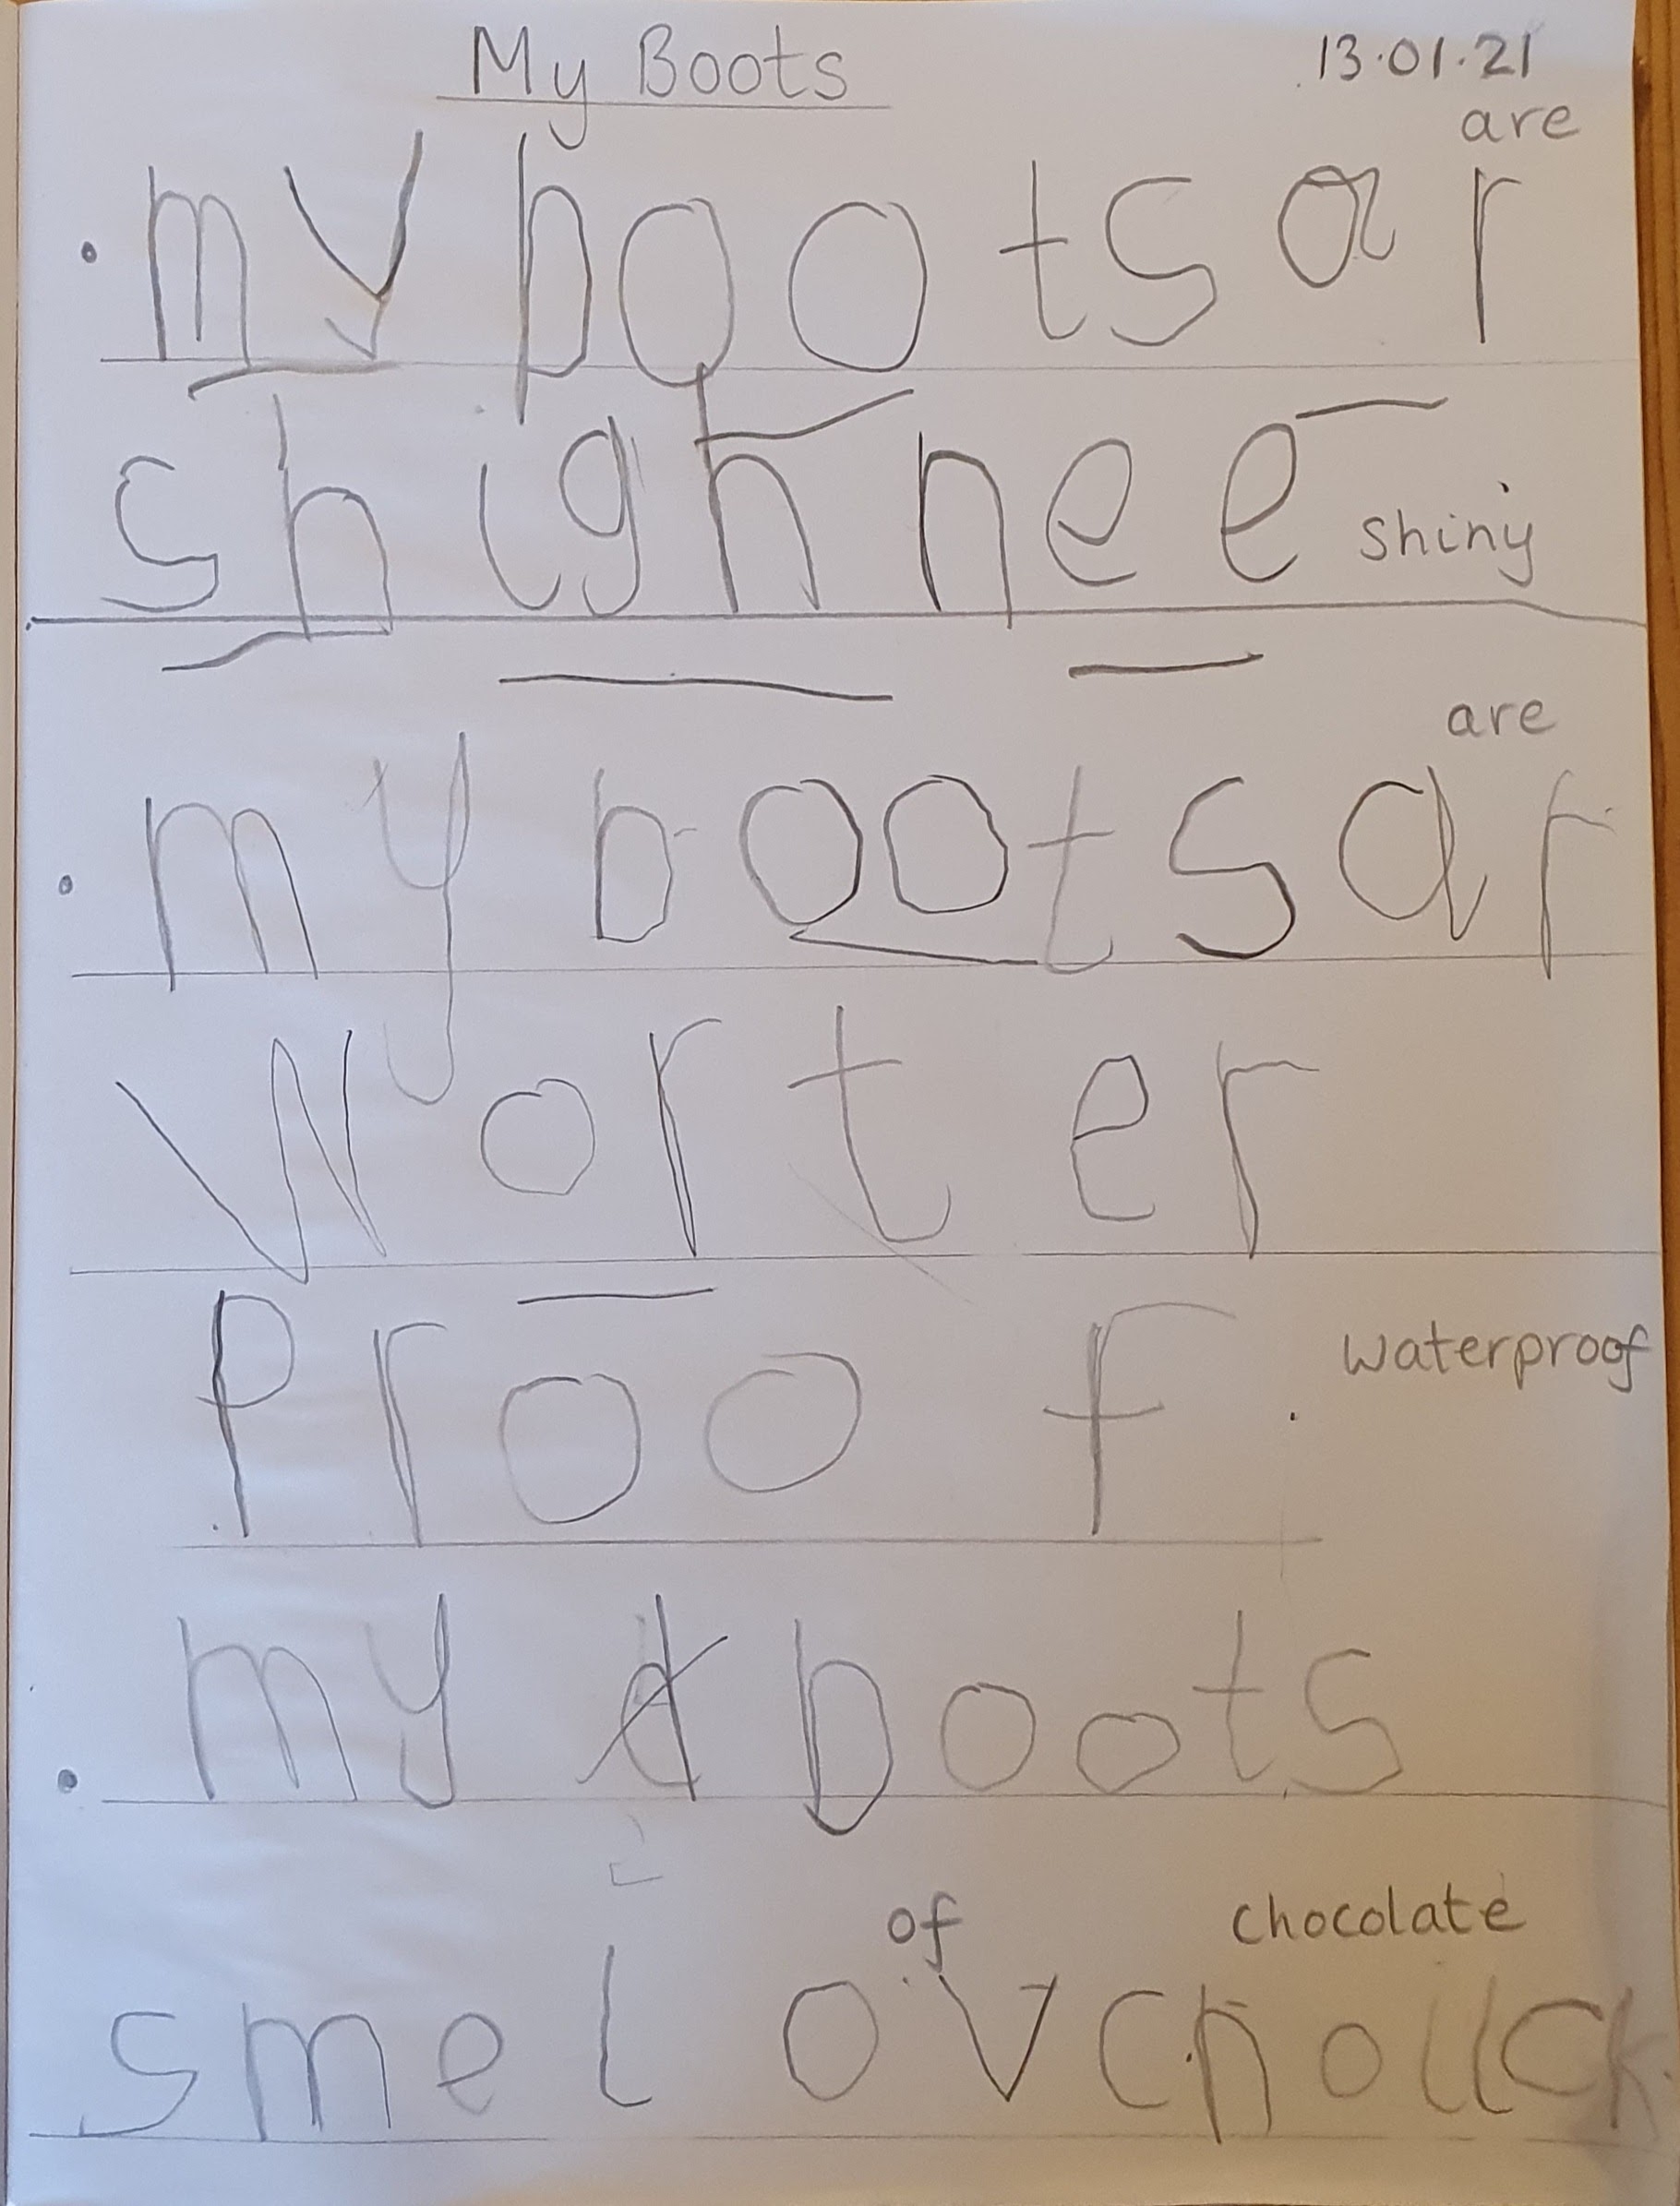 My Boots 13.01.21
are
my boots ar
shighnee shiny
are
my boots ar
worter
Proof. waterproof
my boots
of chocolate
smel ov